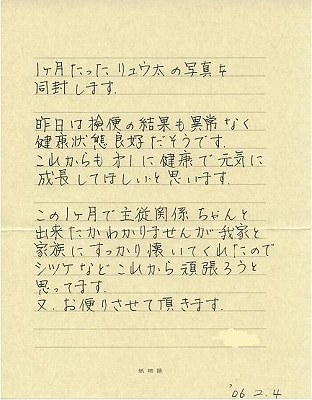 1ヶ月たった リュウ太の写真を
同封します.
昨日は検便の結果も異常なく
健康状態良好だそうです.
これからも 健康で元気に
成長してほしいと思います.
この1ヶ月で主従関係ちゃんと
出来たかわかりませんが我家と
家族にすっかり懐いてくれたので
シツケなどこれから頑張ろうと
思ってます.
又.お便りさせて頂きます.
'06.2.4